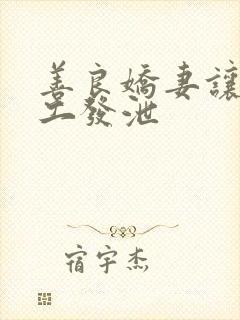 善良嬌妻讓
工發泄
宿宇杰